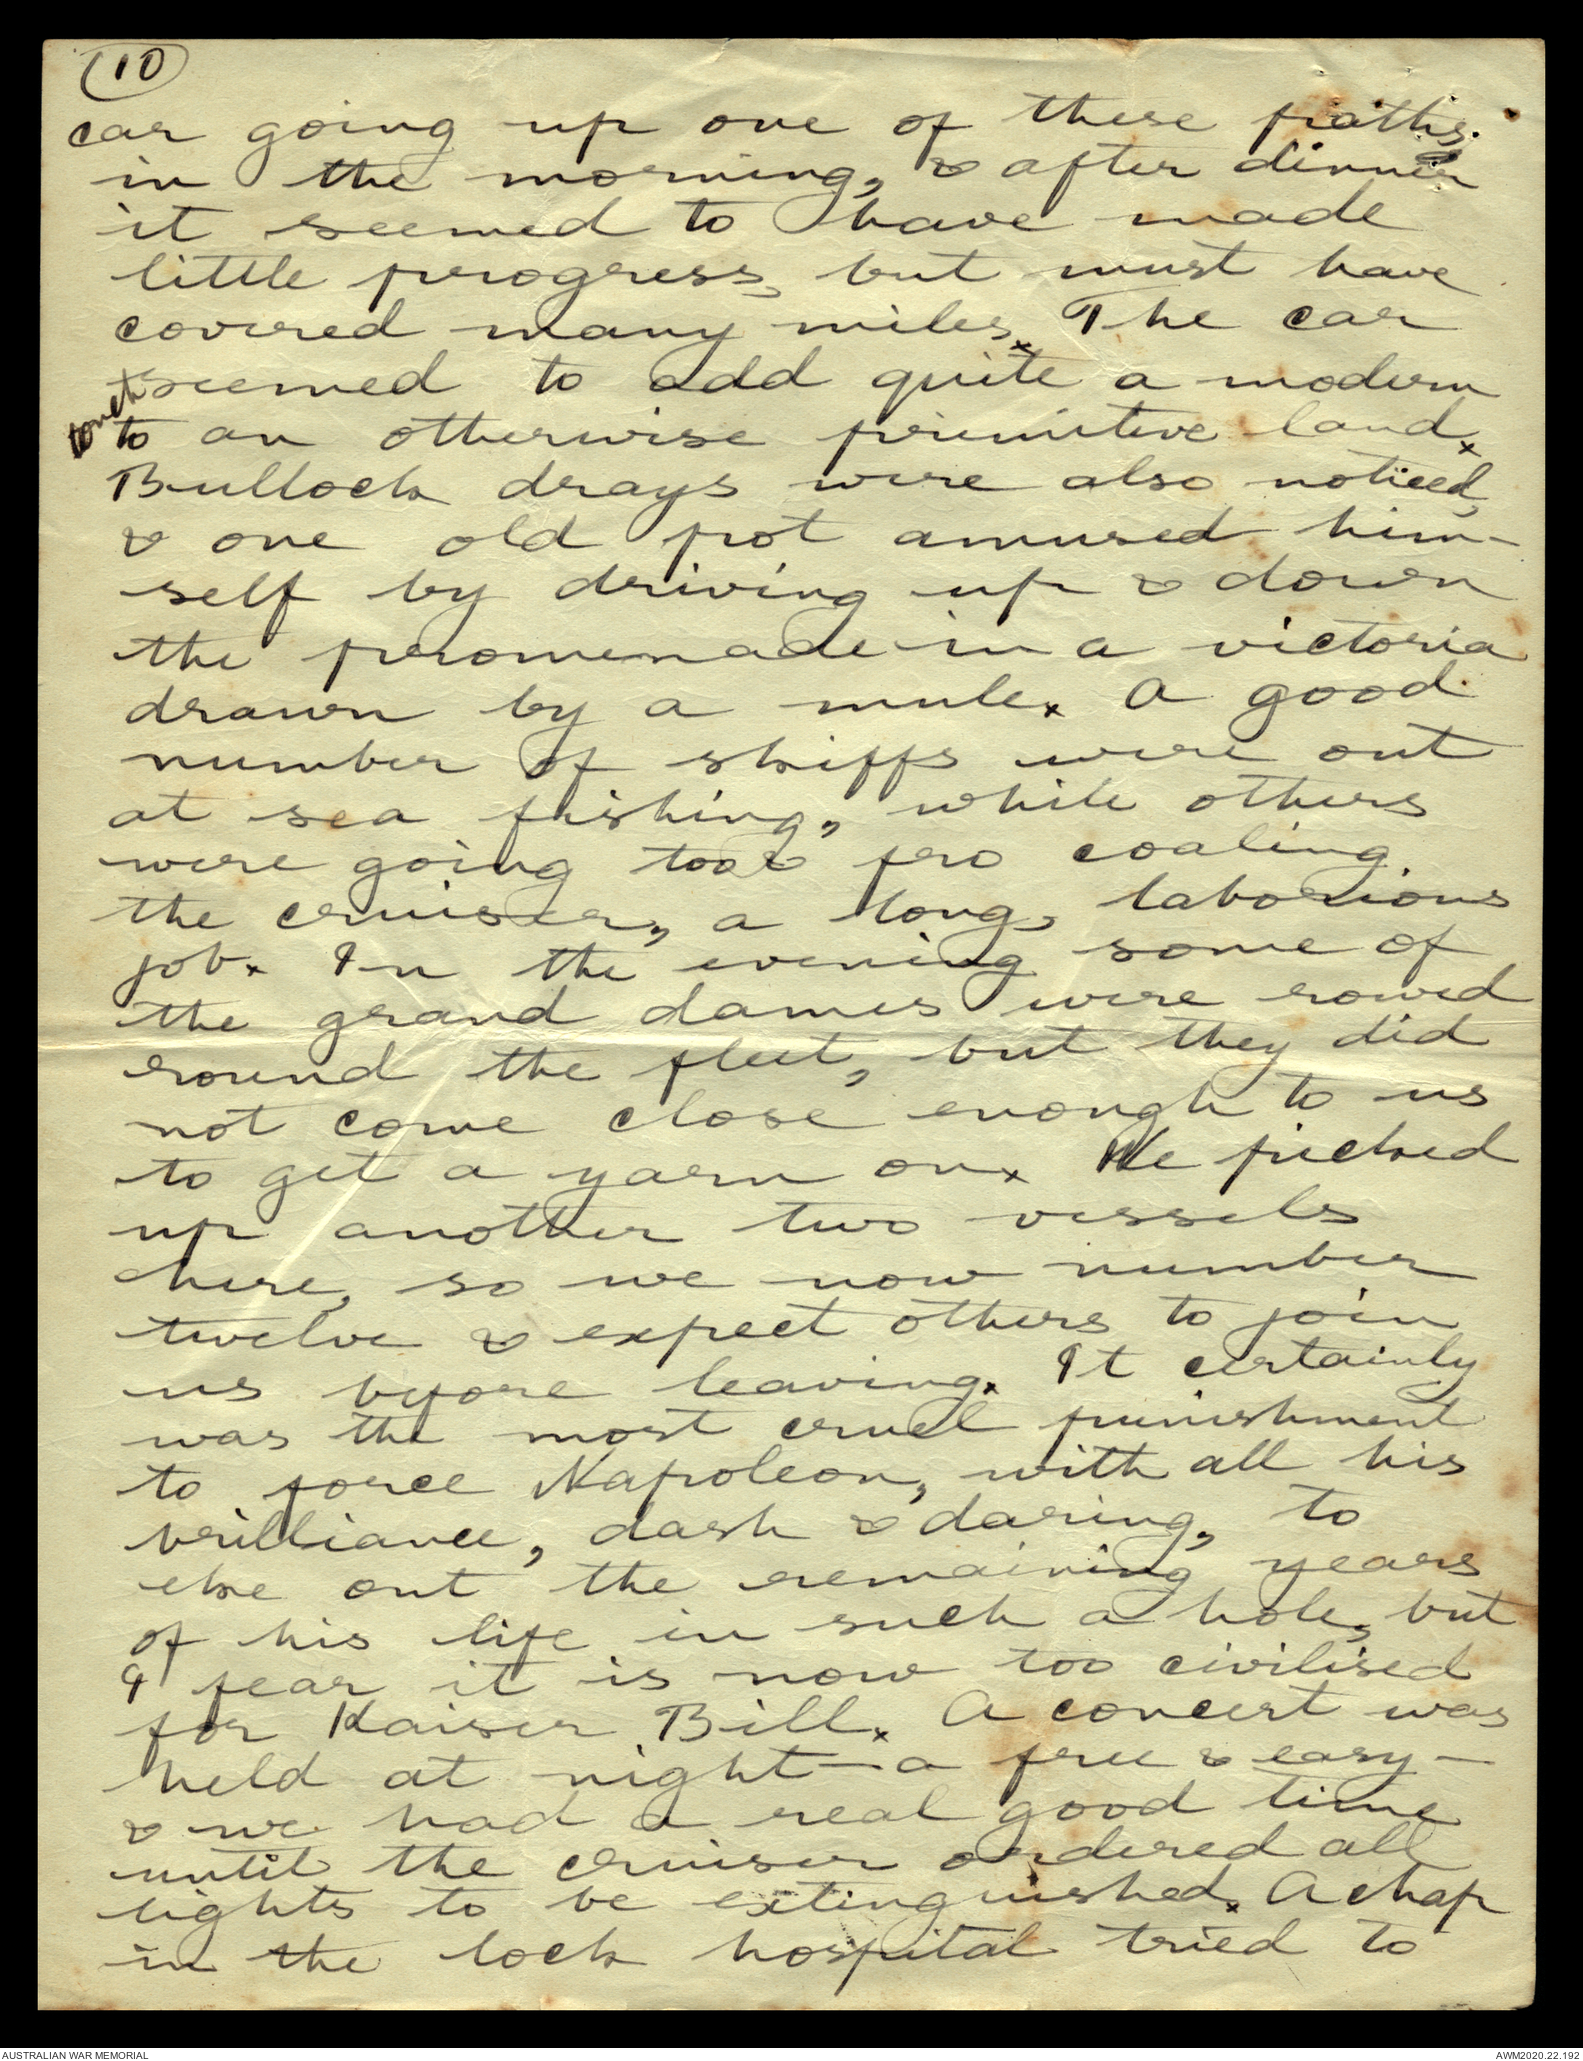 (10)
car going up one of these paths
in the morning, & after dinner
it seemed to have made
little progress, but must have
covered many miles. The car
seemed to add quite a modern
touch
to an otherwise primitive land.
Bullock drays were also noticed,
& one old pot amused him-
self by driving up & down
the promenade in a victoria
drawn by a mule. A good
number of skiffs were out
at sea fishing, while others
were going too & fro coaling
the cruiser, a long, laborious
job. In the evening some of
the grand dames were rowed
round the fleet, but they did
not come close enough to us
to get a yarn on. We picked
up another two vessels
here, so we now number
twelve & expect others to join
us before leaving. It certainly
was the most cruel punishment
to force Napoleon, with all his
brilliance, dash & daring, to
eke out the remaining years
of his life in such a hole, but
I fear it is now too civilised
for Kaiser Bill. A concert was
held at night - a free & easy -
& we had a real good time
until the cruiser ordered all
lights to be extinguished. A chap
in the lock hospital tried to
AUSTRALIAN WAR MEMORIAL
AWM2020.22.192